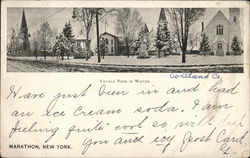 Village Park in Winter
Cortland Co.
MARATHON, NEW YORK.
Have just been in and had
an ice cream soda. I am
feeling quite cool so will
you and icy Post Card